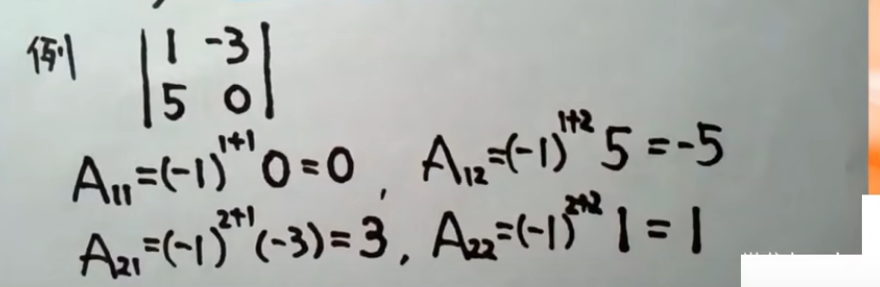 例 | 1 -3 |
| 5 0 |
A₁₁=(-1)¹⁺¹ 0=0 , A₁₂=(-1)¹⁺² 5=-5
A₂₁=(-1)²⁺¹ (-3)=3 , A₂₂=(-1)²⁺² 1=1